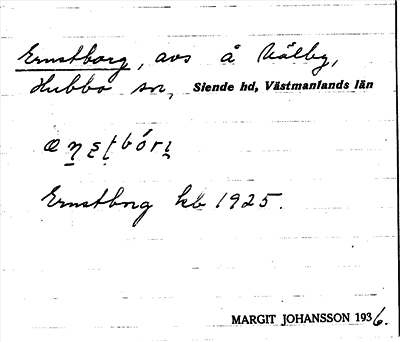 Ernstborg, avs å Kålby,
Hubbo sn, Siende hd, Västmanlands län
Ernstborg kb 1925.
MARGIT JOHANSSON 1936.